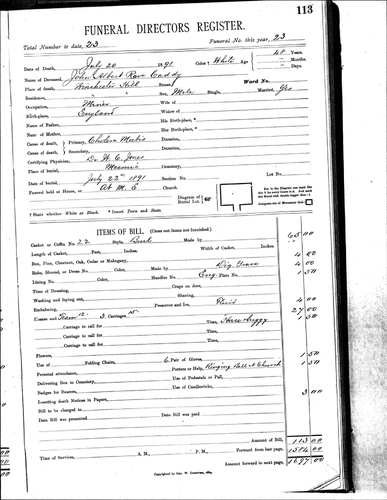 113
FUNERAL DIRECTORS REGISTER.
Total Number to date, 213 Funeral No. this year, 23
Date of Death, July 20 1891 Color † White Age 48 Years.
– Months.
– Days.
Name of Deceased, John Albert
Place of death, Winchester Hill Street Ward No.
Residence, Sex, Male Single, Married, Yes
Occupation, Miner Wife of
Birth-place, England Widow of
Name of Father, His Birth-place, *
Name of Mother, Her Birth-place, *
Cause of death, Primary, Cholera Duration,
Cause of death, Secondary, Duration,
Certifying Physician, Dr
Place of burial, Cemetery,
Date of burial, July 22nd 1891 Section No. Lot No.
Funeral held at House, or At M. E Church.
Diagram of Burial Lot,
† State whether White or Black. * Insert Town and State.
ITEMS OF BILL. (Cross out items not furnished.)
Casket or Coffin No. 22 Style, Made by 65 00
Length of Casket, Feet, Inches. Width of Casket, Inches.
Box, Pine, Chestnut, Oak, Cedar or Mahogany, 4 00
Robe, Shroud, or Dress No. Color, Made by Dig Grave 4 00
Lining No. Color, Handles No. Eng. Plate No. 1 50
Time of Dressing, Crape on door,
Washing and laying out, Shaving,
Embalming, Preserver and Ice, 4 00
Hearse 12 – 3 Carriages 15 – 27 00
Carriage to call for Time, 1 50
Carriage to call for Time,
Carriage to call for Time,
Flowers,
Use of Folding Chairs, 6 Pair of Gloves, 1 50
Personal attendance, Porters or Help, Ringing Bell at Church 1 50
Delivering Box to Cemetery, Use of Pedestals or Pall,
Badges for Bearers, Use of Candlesticks,
Inserting death Notices in Papers, 3 00
Bill to be charged to
Date Bill was presented Date Bill was paid
Amount of Bill, 113 00
Time of Service, A. M., P. M., Forward from last page, 1584 00
Amount forward to next page, 1697 00